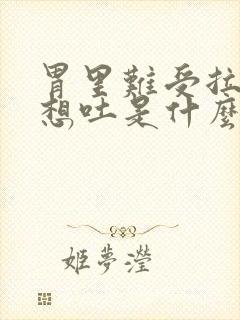 胃里難受拉
想吐是什麼
姬夢瀅